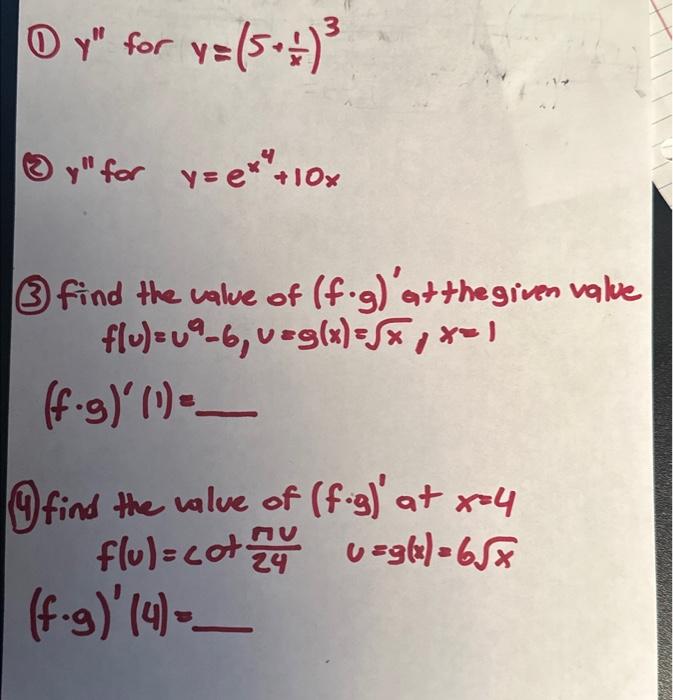 ① y" for y=(5+1/x)³
② y" for y=e^x⁴+10x
③ find the value of (f·g)' at the given value
f(u)=u⁹-6, u=g(x)=√x, x=1
(f·g)'(1)=___
④ find the value of (f·g)' at x=4
f(u)=cot πu/24 u=g(x)=6√x
(f·g)'(4)=___